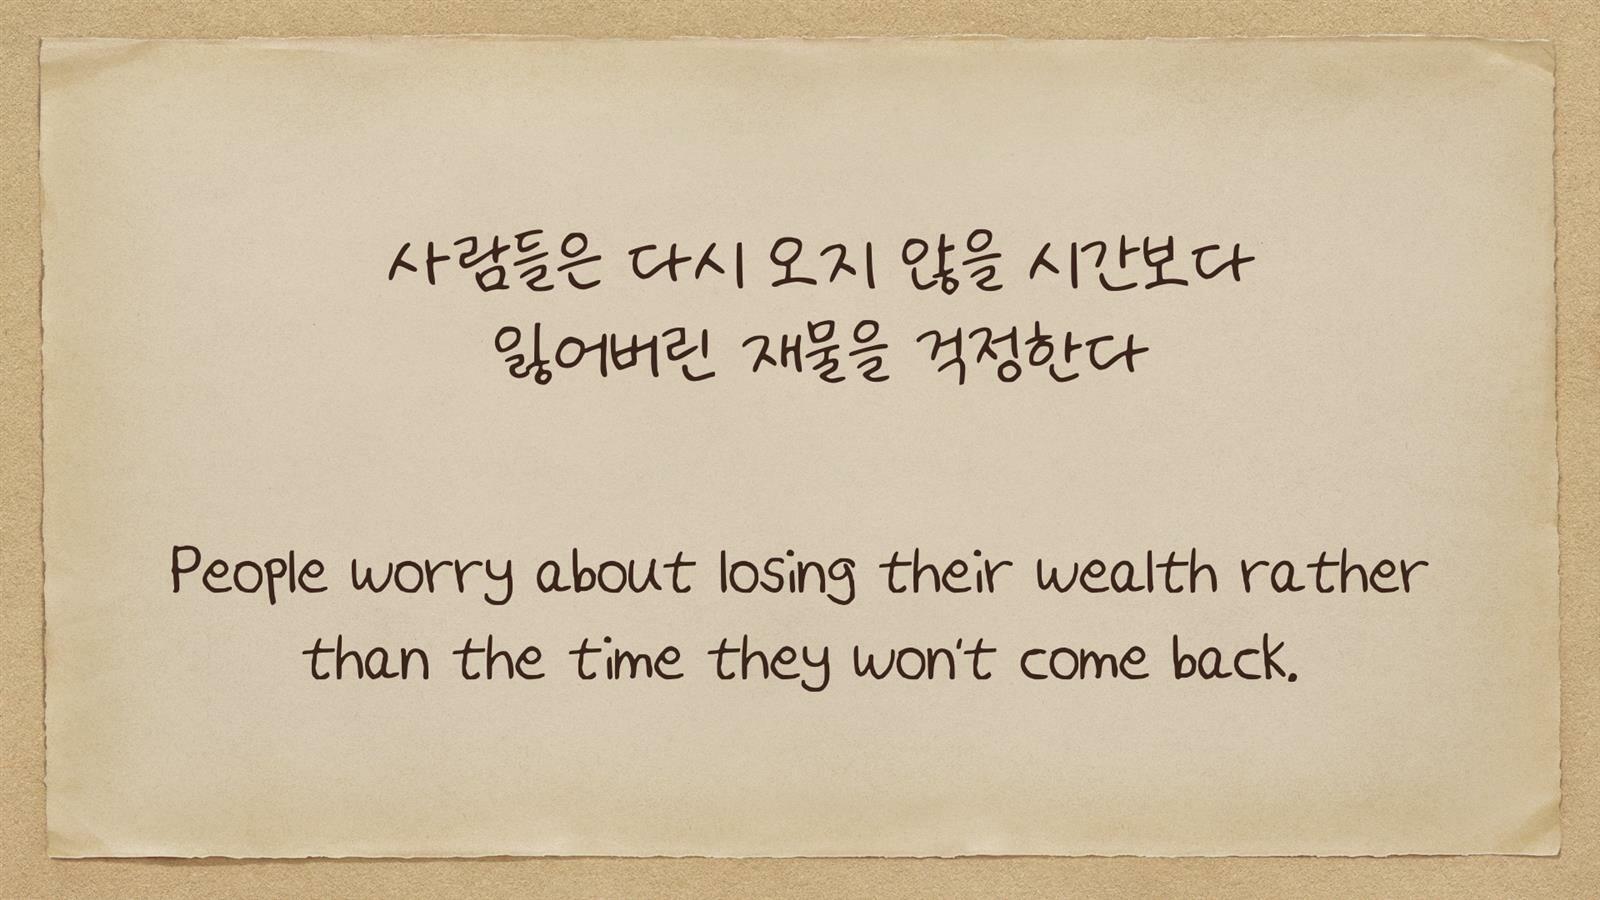 사람들은 다시 오지 않을 시간보다
잃어버린 재물을 걱정한다
People worry about losing their wealth rather
than the time they won't come back.